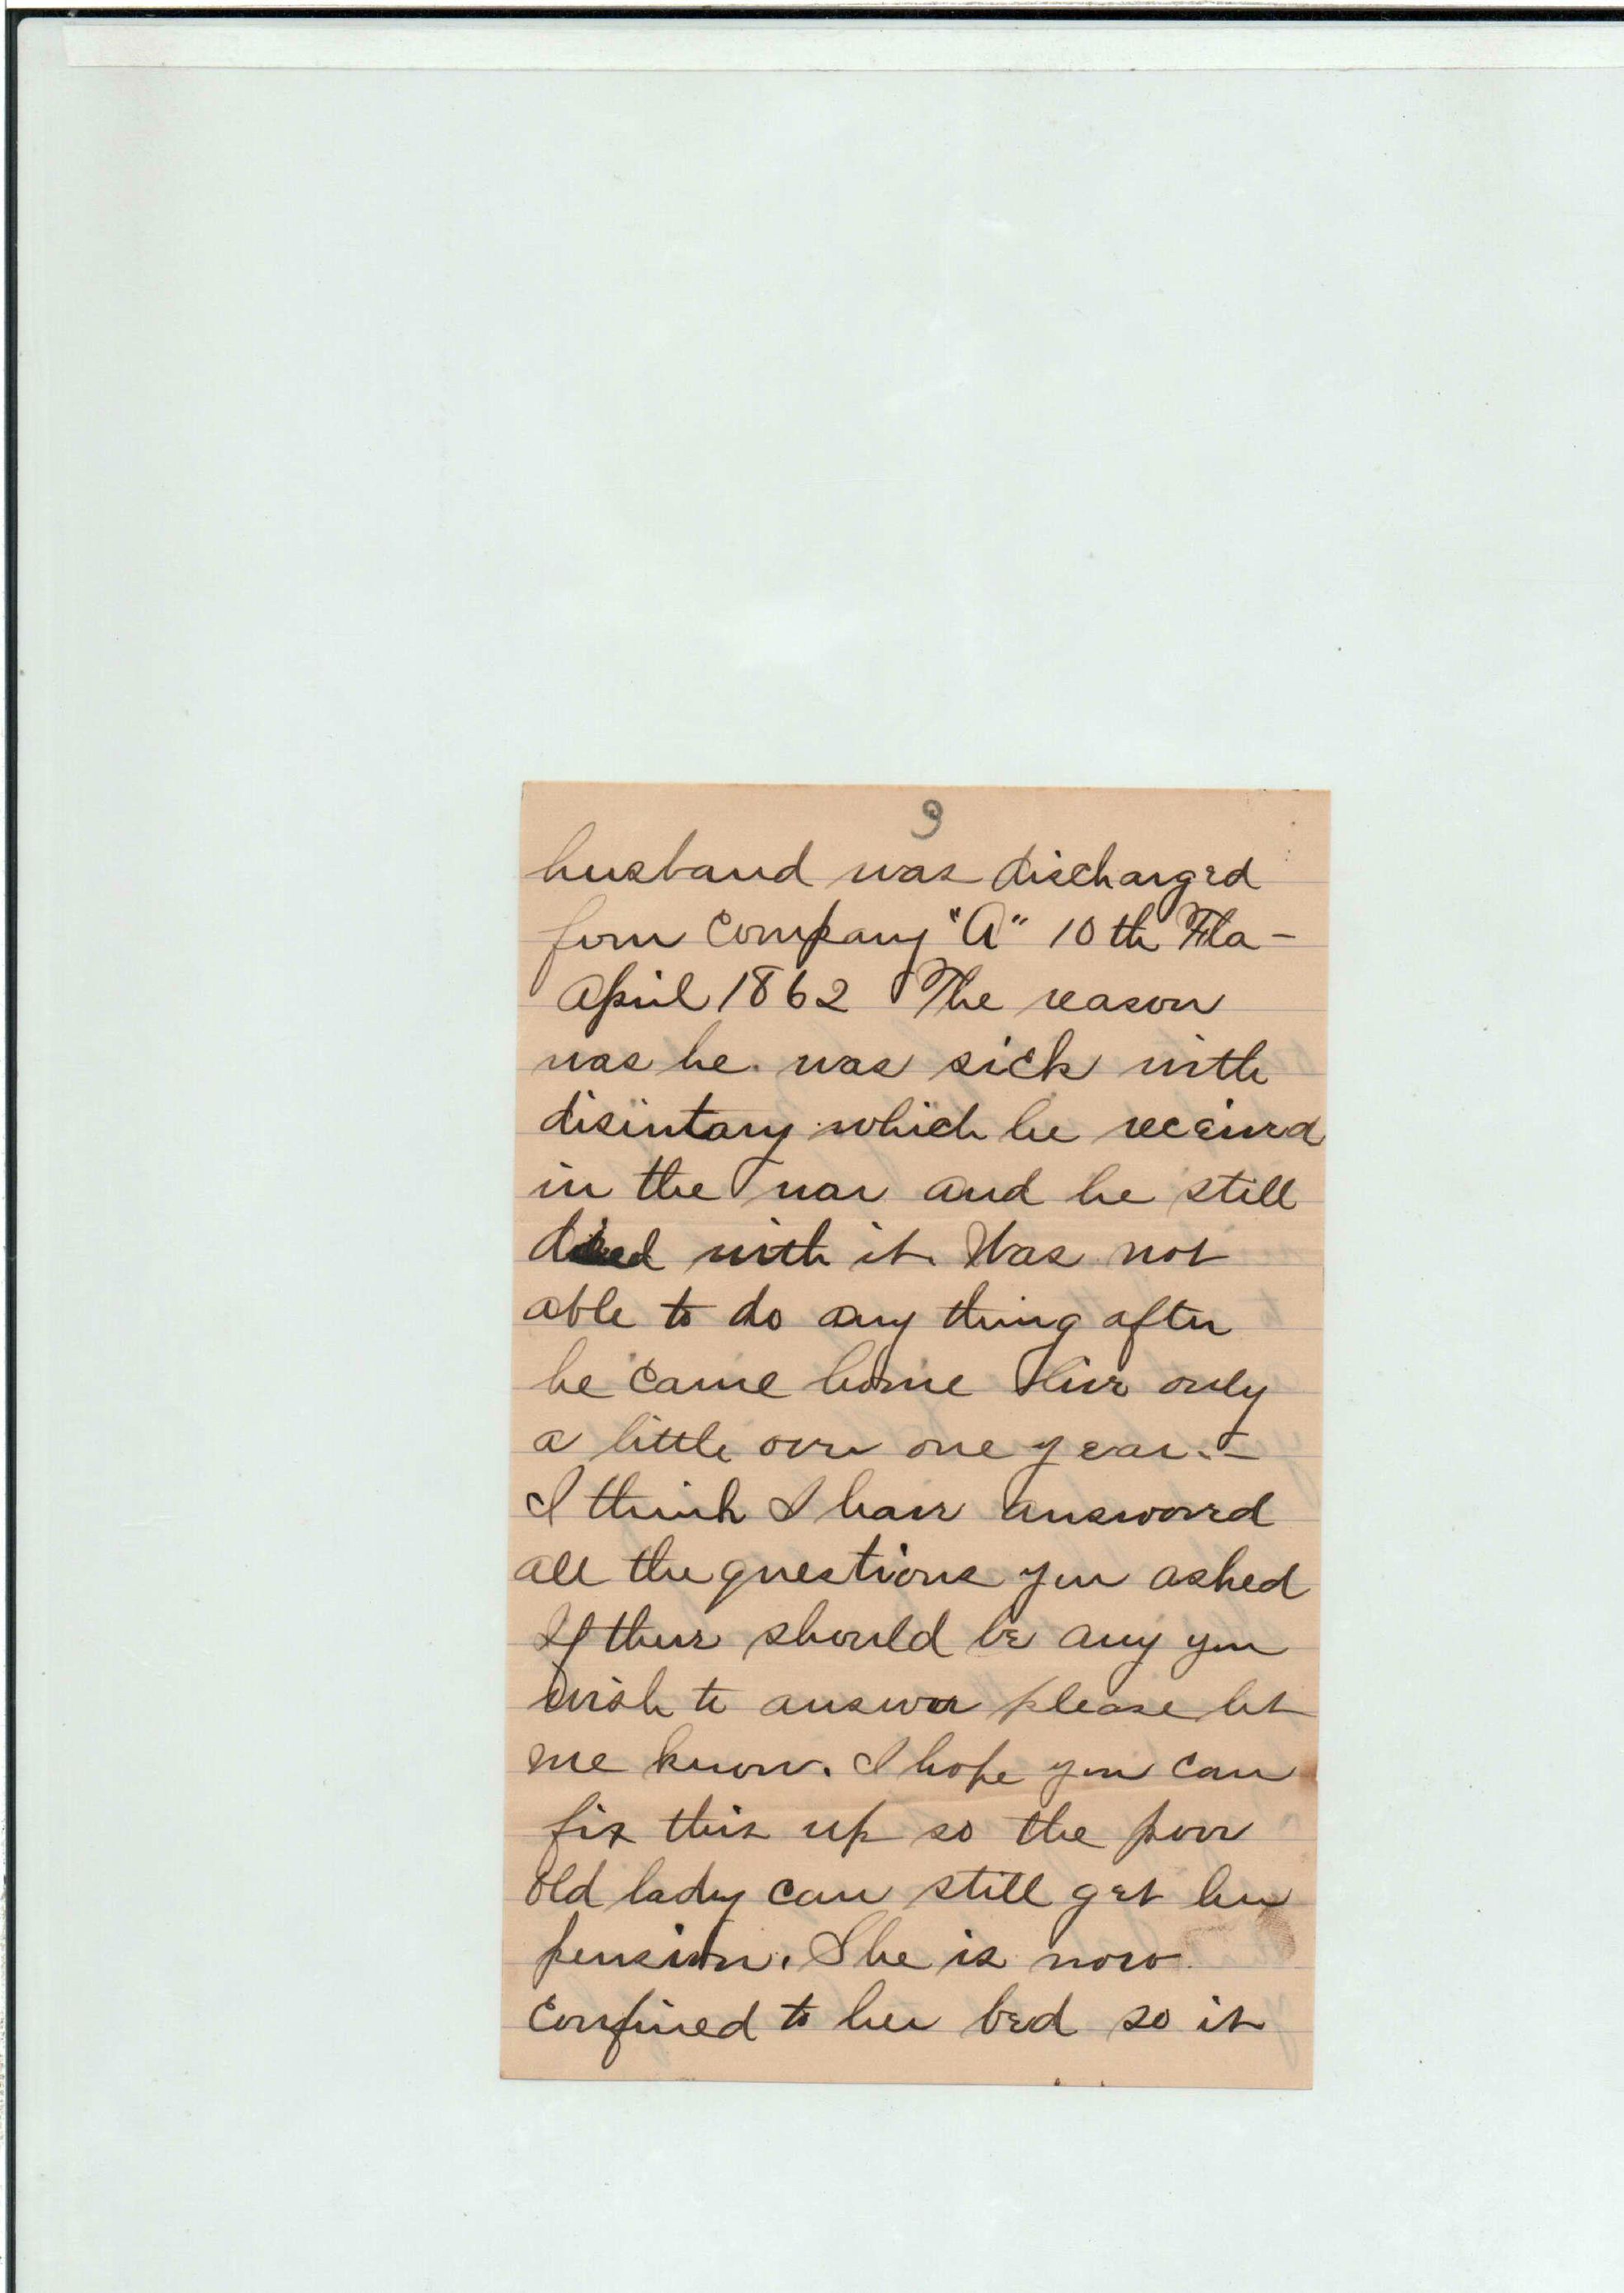 3
husband was discharged
from Company "A" 10th Fla -
April 1862 The reason
was he was sick with
disintary which he received
in the war and he still
died with it. Was not
able to do any thing after
he came home live only
a little over one year. -
I think I have answored
all the questions you asked
If there should be any you
wish to answer please let
me know. I hope you can
fix this up so the poor
old lady can still get her
pension. She is now
confined to her bed so it